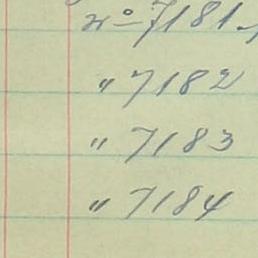 nº 7181
" 7182
" 7183
" 7184